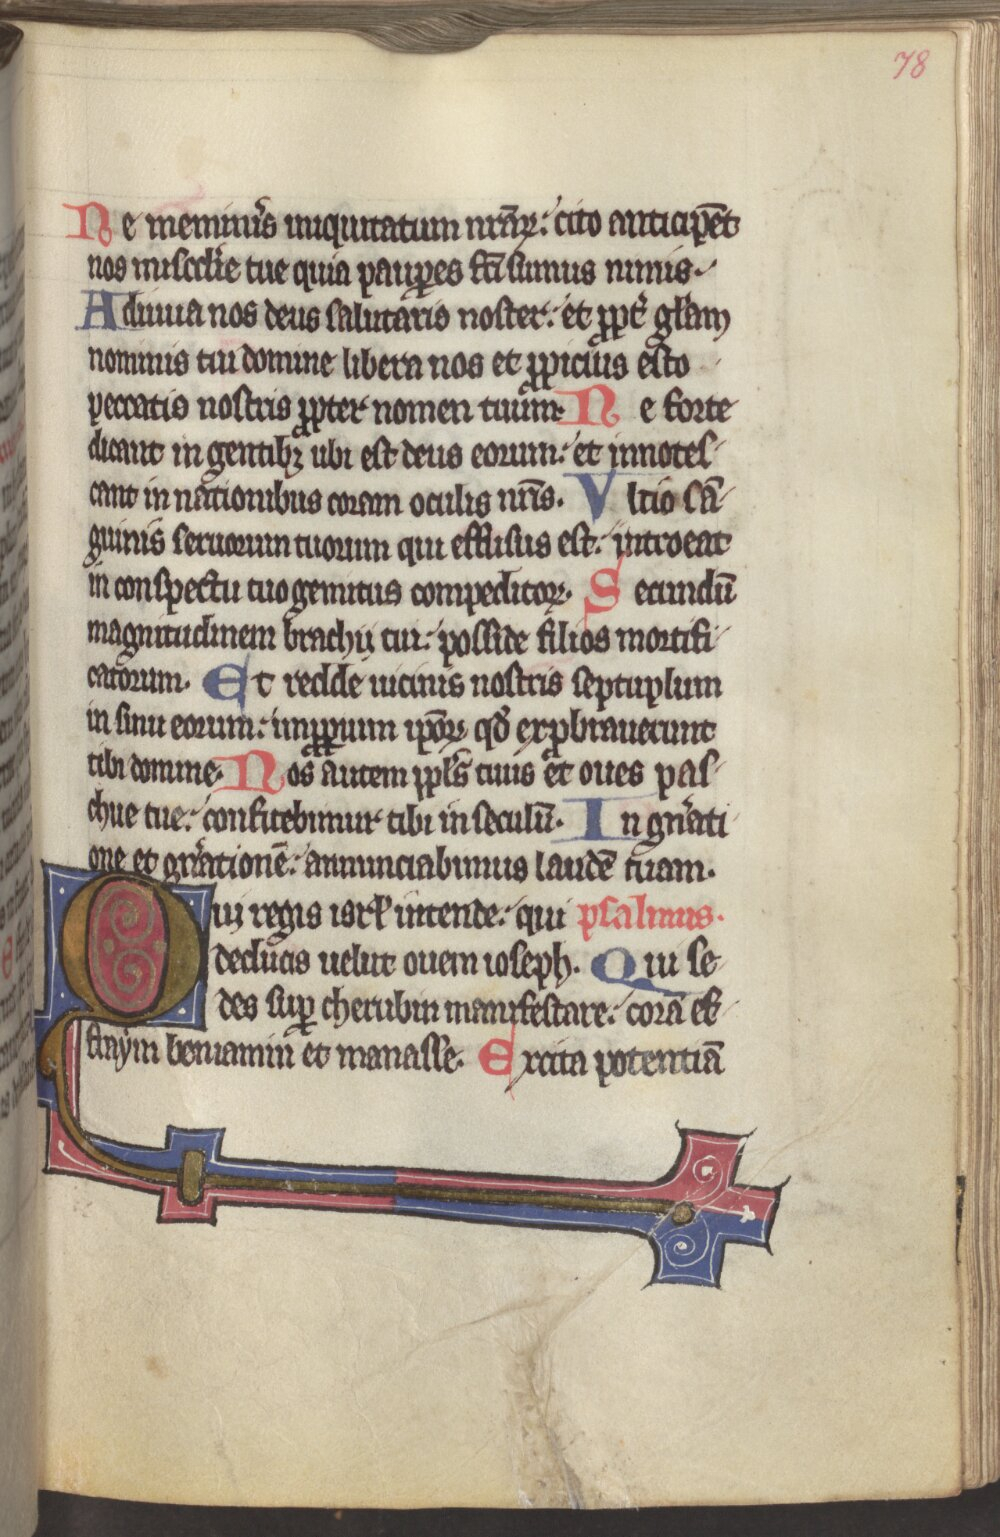 78
Ne memin̾is iniquitatum nr̄aꝝ: cito anticipēt
nos mis̾cdīe tue quia pauꝑes fc̄i sumus nimis.
Adiuua nos deus salutaris noster: et ꝓpt̾ gl̄am
nominis tui domine libera nos et ꝓpicius esto
peccatis nostris ꝓpter nomen tuum. Ne forte
dicant in gentibꝫ ubi est deus eorum: et innotes
cant in nationibus coram oculis nr̄is. Vltio sā
guinis seruorum tuorum qui effusus est: introeat
in conspectu tuo gemitus compeditoꝝ. Secundū
magnitudinem brachii tui: posside filios mortifi
catorum. Et redde uicinis nostris septuplum
in sinu eorum: imꝓꝑium ip̄oꝝ qd̾ exprobrauerunt
tibi domine. Nos autem ppl̄s tuus et oues pas
chue tue: confitebimur tibi in seculū. In gn̾ati
one et gn̾ationē: annunciabimus laudē tuam.
Qui regis isrl̄ intende: qui psalmus.
deducis uelut ouem ioseph. Qui se
des suꝑ cherubin manifestare: corā ef
fraym beniamin et manasse. Excita potentiā